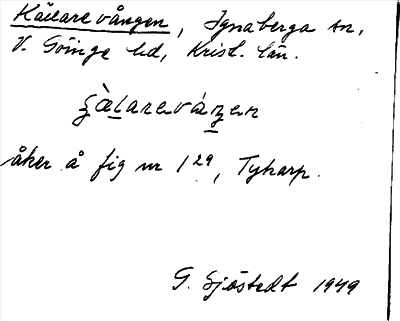 Källarevången, Ignaberga sn,
V. Göinge hd, Krist. län.
åker å fig nr 1²⁹, Tyharp.
G. Sjöstedt 1949